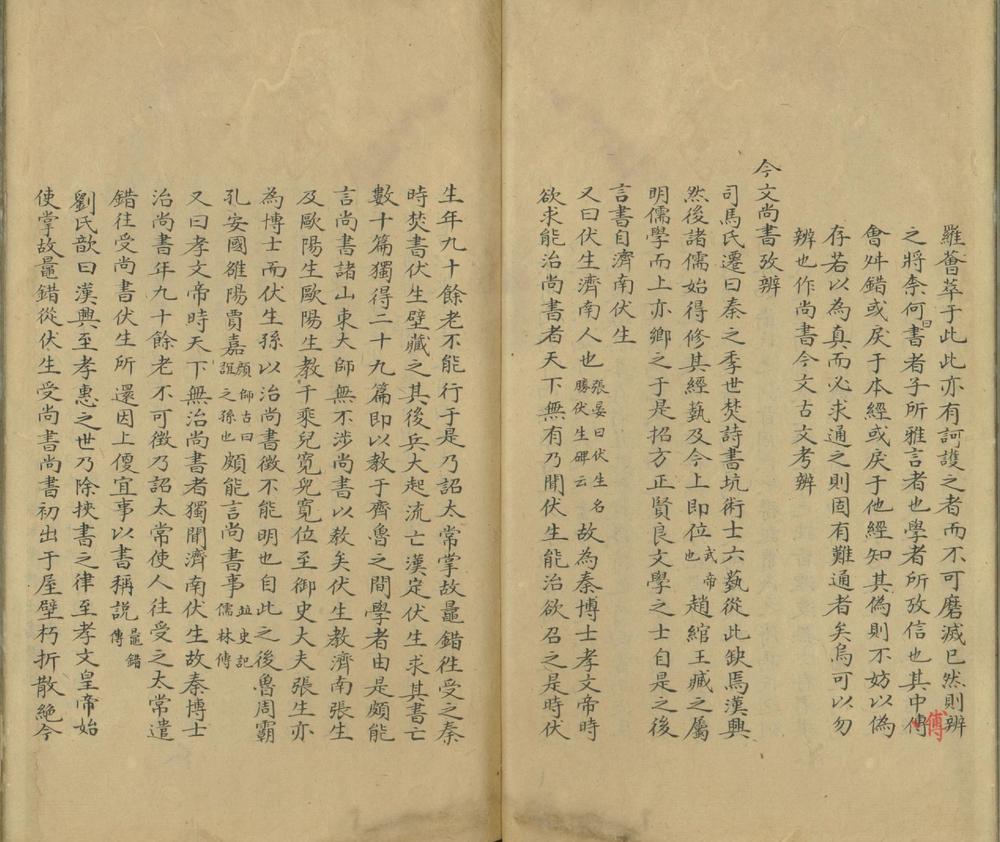 羅薈萃于此此亦有訶護之者而不可磨滅已然則辨
之將柰何曰書者子所雅言者也學者所攷信也其中傅
傅
會舛錯或戾于本經或戾于他經知其偽則不妨以偽
存若以為真而必求通之則固有難通者矣烏可以勿
辨也作尚書今文古文考辨
今文尚書攷辨
司馬氏遷曰秦之季世焚詩書坑術士六藝從此缺焉漢興
然後諸儒始得修其經藝及今上即位武帝也趙綰王臧之屬
明儒學而上亦鄉之于是招方正賢良文學之士自是之後
言書自濟南伏生
又曰伏生濟南人也張晏曰伏生名勝伏生碑云故為秦博士孝文帝時
欲求能治尚書者天下無有乃聞伏生能治欲召之是時伏
生年九十餘老不能行于是乃詔太常掌故鼂錯徃受之秦
時焚書伏生壁藏之其後兵大起流亡漢定伏生求其書亡
數十篇獨得二十九篇即以教于齊魯之間學者由是頗能
言尚書諸山東大師無不涉尚書以教矣伏生教濟南張生
及歐陽生歐陽生教千乘兒寬兒寬位至御史大夫張生亦
為博士而伏生孫以治尚書徵不能明也自此之後魯周霸
孔安國雒陽賈嘉顏師古曰誼之孫也頗能言尚書事並史記儒林傳
又曰孝文帝時天下無治尚書者獨聞濟南伏生故秦博士
治尚書年九十餘老不可徵乃詔太常使人往受之太常遣
錯往受尚書伏生所還因上便宜事以書稱說鼂錯傳
劉氏歆曰漢興至孝惠之世乃除挾書之律至孝文皇帝始
使掌故鼂錯從伏生受尚書尚書初出于屋壁朽折散絕今